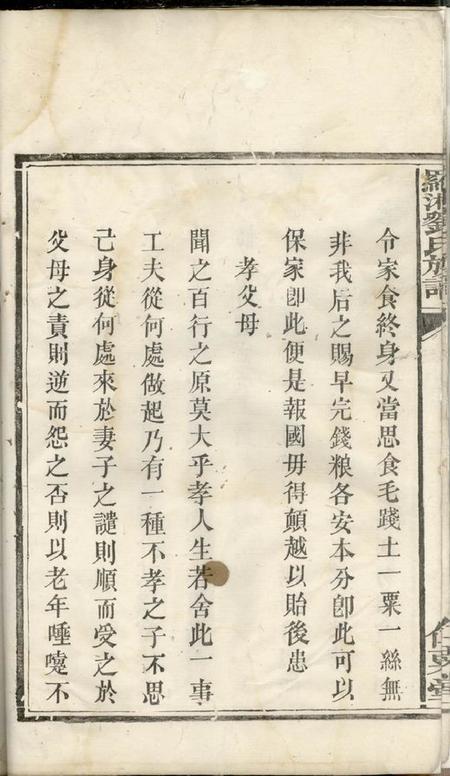 劉氏族譜
令家食終身又當思食毛踐土一粟一絲無
非我后之賜早完錢粮各安本分卽此可以
保家卽此便是報國毋得顛越以貽後患
孝父母
聞之百行之原莫大乎孝人生若舍此一事
工夫從何處做起乃有一種不孝之子不思
己身從何處來於妻子之譴則順而受之於
父母之責則逆而怨之否則以老年唾嚏不